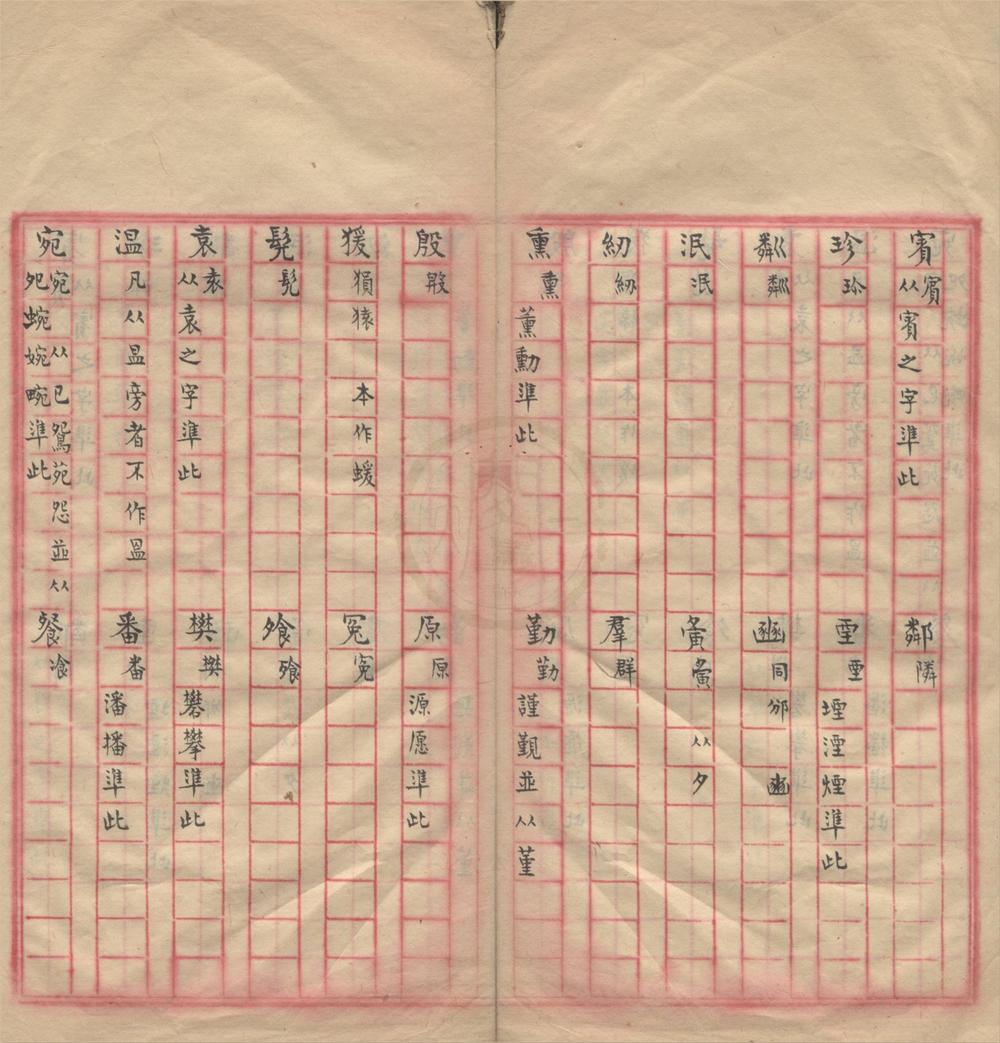 賓 賓从賓之字準此 鄰 隣
珍 珎 垔 垔堙湮煙準此
粼 粼 豳 同邠 豳
泯 泯 夤 夤 从夕
紉 紉 羣 群
熏 熏薰勳準此 勤 勤謹覲並从堇
殷 殷 原 原源愿準此
猨 猿猿 本作蝯 冤 寃
髡 髠 飧 飱
袁 袁从袁之字準此 樊 樊礬攀準此
温 凡从昷旁者不作𥁕 番 畨潘播準此
宛 宛 从㔾鴛苑怨並从夗蜿婉畹準此 餐 飡